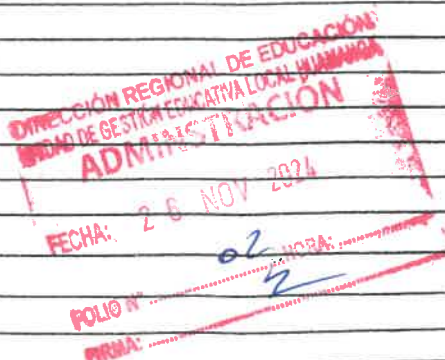 DIRECCIÓN REGIONAL DE EDUCACIÓN
UNIDAD DE GESTIÓN EDUCATIVA LOCAL HUAMANGA
ADMINISTRACIÓN
FECHA: 26 NOV 2024
HORA: ..........
FOLIO N° ..........
02
FIRMA: ..........